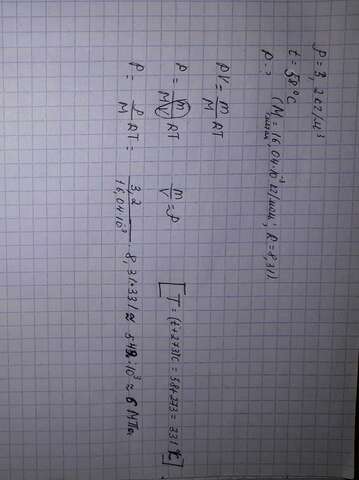 ρ = 3,2 кг/м³
t = 58°C
p - ? (M = 16,04·10⁻³ кг/моль; R = 8,31)
метан
PV = m/M RT
p = m/MV RT m/V = ρ [T = (t+273)C = 58+273 = 331 K]
P = ρ/M RT = 3,2/16,04·10³ · 8,31·331 ≈ 548·10³ ≈ 6 МПа